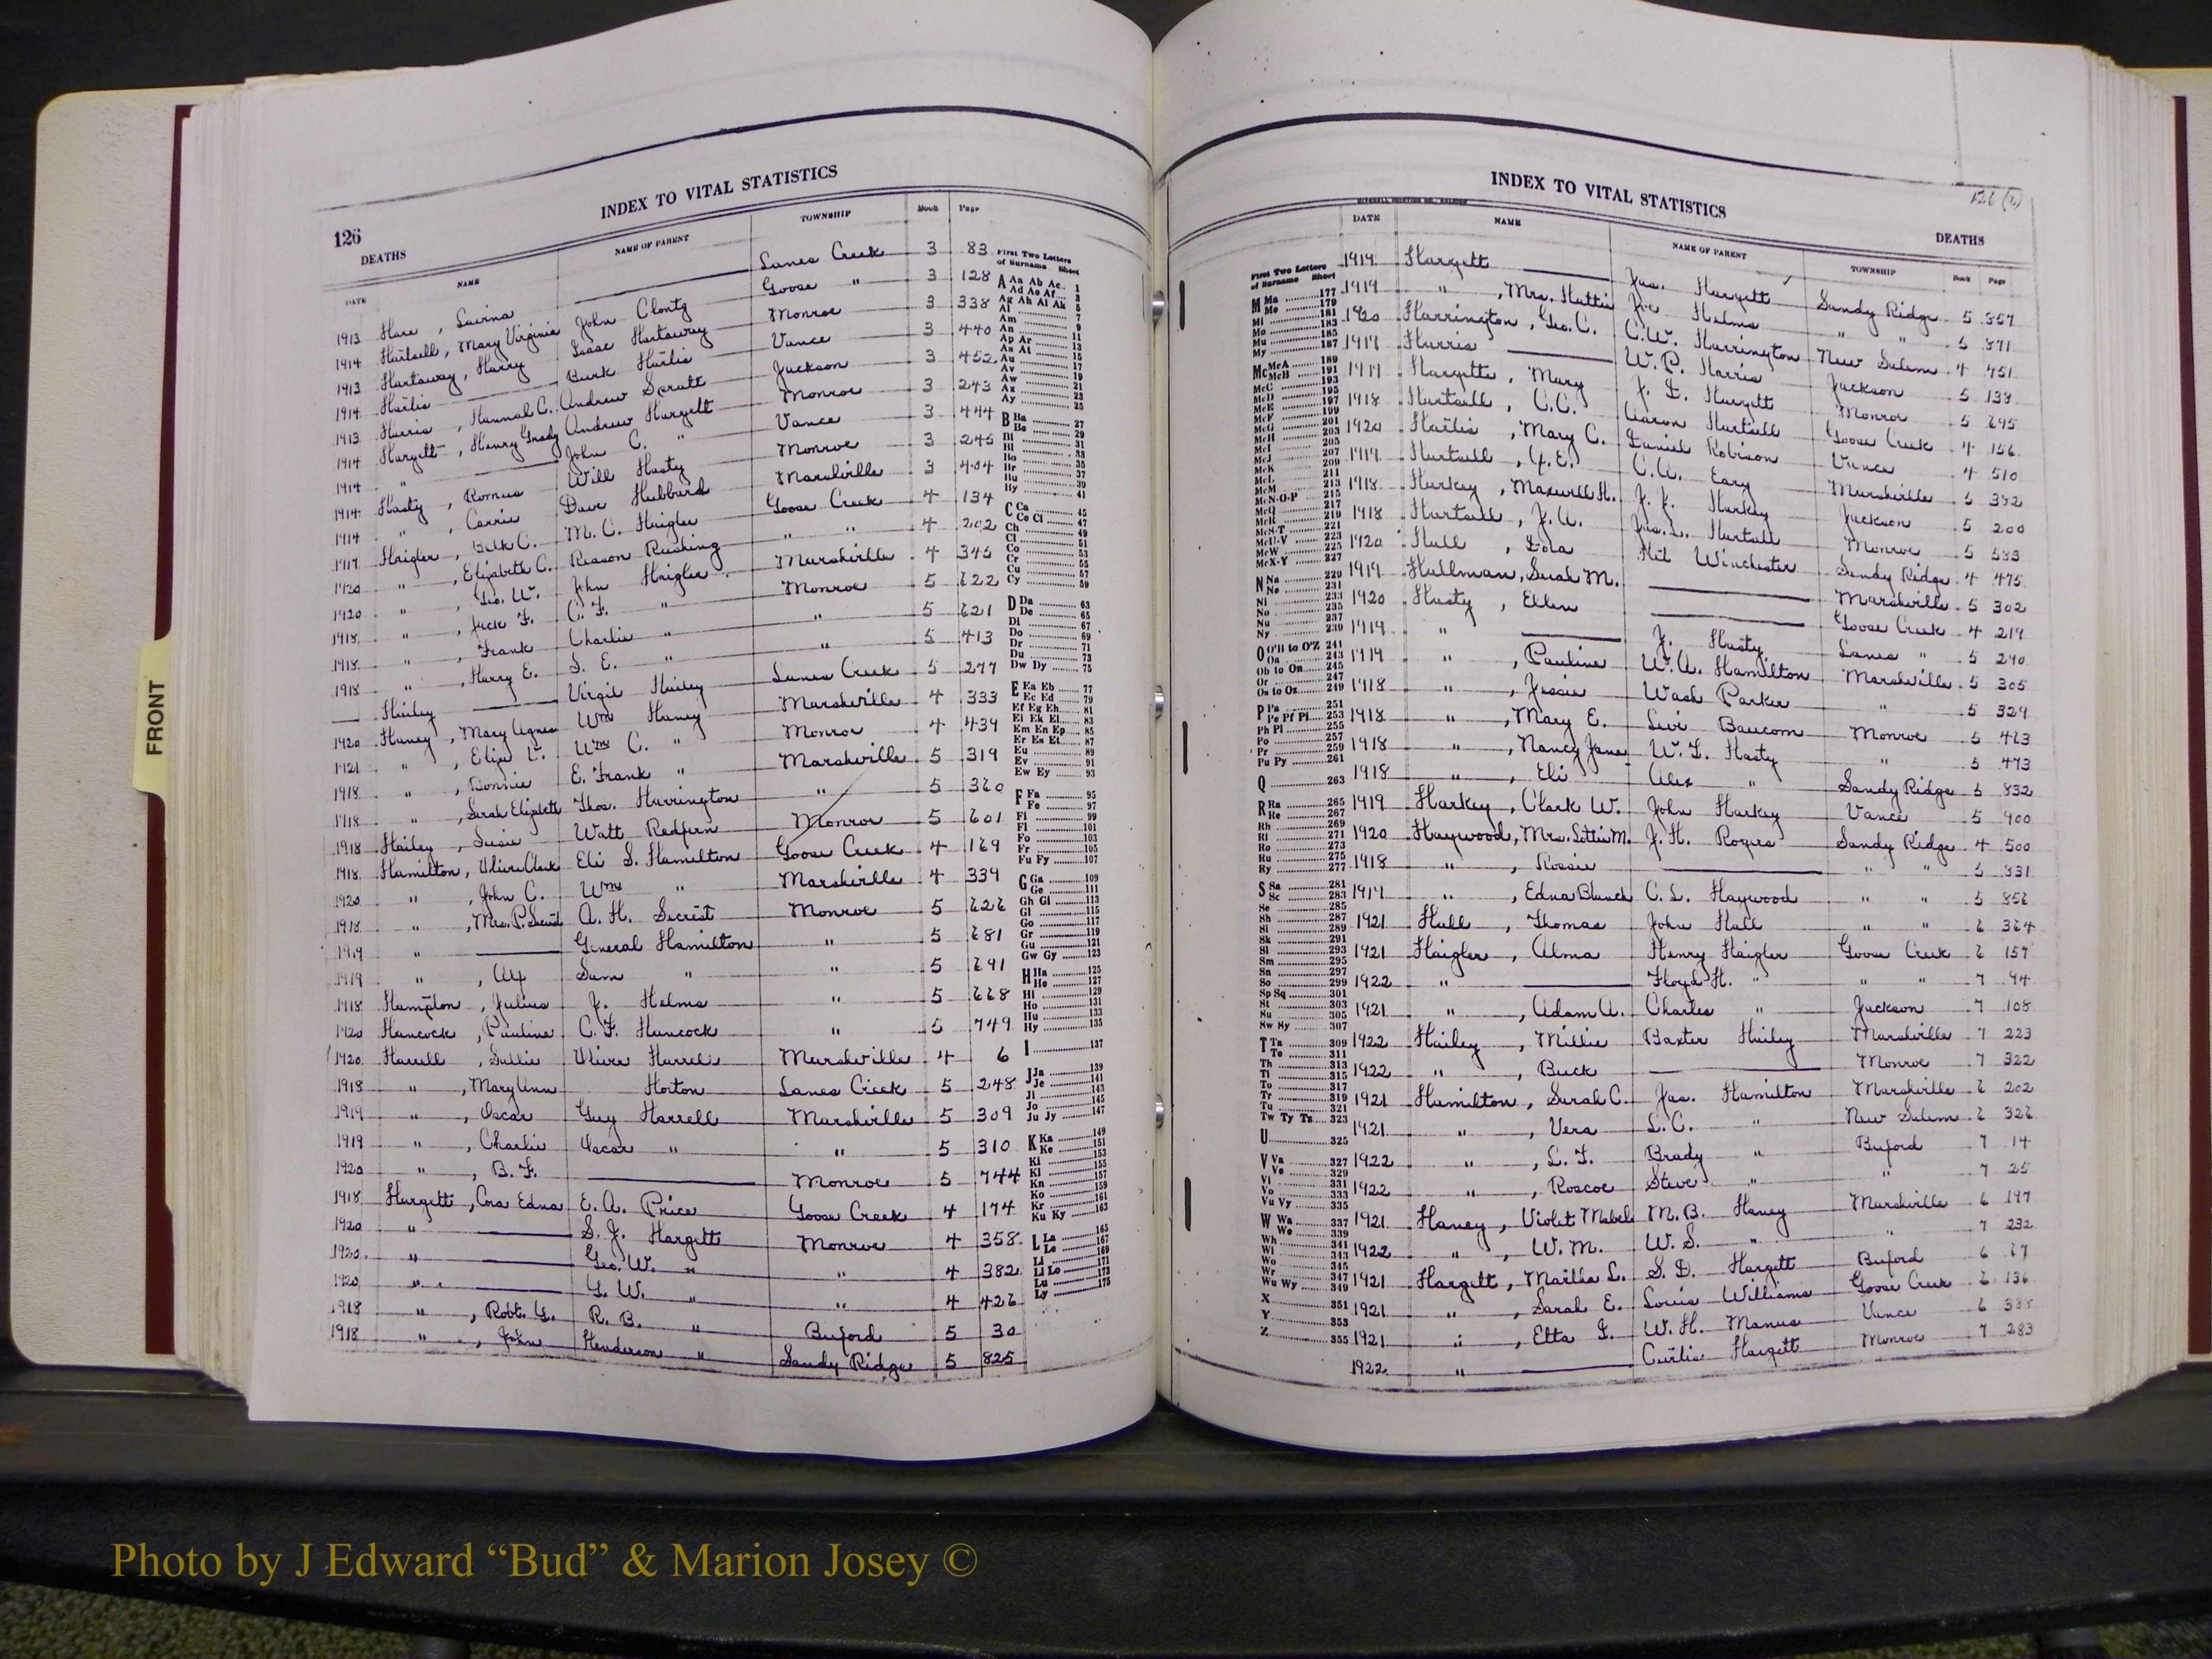 INDEX TO VITAL STATISTICS
126
DEATHS
DATE NAME NAME OF PARENT TOWNSHIP Book Page
1913 Hare, Lavina Lanes Creek 3 83
1914 Hartsell, Mary Virginia John Clontz Goose " 3 128
1913 Hartaway, Harry Isaac Hartaway Monroe 3 338
1914 Hartis Burk Hartis Vance 3 440
1913 Harris, Hannah C. Andrew Spratt Jackson 3 452
1914 Hargett, Henry Grady Andrew Hargett Monroe 3 243
1914 " John C. " Vance 3 444
1914 Hasty, Romus Will Hasty Monroe 3 245
1914 ", Carrie Dave Hubbard Marshville 3 404
1917 Haigler, C. M. C. Haigler Goose Creek 4 134
1920 ", Elizabeth C. Reason Rushing " " 4 202
1920 ", Geo. W. John Haigler Marshville 4 345
1918 ", Jack F. C. F. " Monroe 5 622
1918 ", Frank Charlie " " 5 621
1918 ", Harry E. S. E. " " 5 413
Hailey Virgil Hailey Lanes Creek 5 277
1920 Haney, Mary Agnes Wm Haney Marshville 4 333
1921 ", Eliza Wm C. " Monroe 4 439
1918 ", Bonnie E. Frank " Marshville 5 319
1918 ", Sarah Elizabeth Thos. Harrington " 5 360
1918 Hailey, Susie Watt Redfern Monroe 5 601
1918 Hamilton, Olive Clark Eli S. Hamilton Goose Creek 4 169
1920 ", John C. Wm " Marshville 4 339
1918 ", Mrs. P. Secrest A. H. Secrest Monroe 5 626
1919 " General Hamilton " 5 681
1919 ", Alf Sam " " 5 691
1918 Hampton, Julius J. Helms " 5 668
1920 Hancock, Pauline C. F. Hancock " 5 749
1920 Harrell, Sallie Oliver Harrell Marshville 4 6
1918 ", Mary Ann Horton Lanes Creek 5 248
1919 ", Oscar Guy Harrell Marshville 5 309
1919 ", Charlie Oscar " " 5 310
1920 ", B. F. Monroe 5 744
1918 Hargett, Cora Edna E. A. Price Goose Creek 4 174
1920 " S. J. Hargett Monroe 4 358
1920 " Geo. W. " " 4 382
1920 " G. W. " " 4 426
1918 ", Robt. G. R. B. " Buford 5 30
1918 ", John Henderson " Sandy Ridge 5 825
First Two Letters of Surname Sheet
A Aa Ab Ac 1
Ad Ae Af 3
Ag Ah Ai Ak 5
Al 7
Am 9
An 11
Ap Ar 13
As At 15
Au 17
Av 19
Aw 21
Ax 23
Ay 25
B Ba 27
Be 29
Bi 31
Bl 33
Bo 35
Br 37
Bu 39
By 41
C Ca 45
Ce Ci 47
Ch 49
Cl 51
Co 53
Cr 55
Cu 57
Cy 59
D Da 63
De 65
Di 67
Do 69
Dr 71
Du 73
Dw Dy 75
E Ea Eb 77
Ec Ed 79
Ef Eg Eh 81
Ei Ek El 83
Em En Ep 85
Er Es Et 87
Eu 89
Ev 91
Ew Ey 93
F Fa 95
Fe 97
Fi 99
Fl 101
Fo 103
Fr 105
Fu Fy 107
G Ga 109
Ge 111
Gh Gi 113
Gl 115
Go 117
Gr 119
Gu 121
Gw Gy 123
H Ha 125
He 127
Hi 129
Ho 131
Hu 133
Hy 135
I 137
J Ja 139
Je 141
Ji 143
Jo 145
Ju Jy 147
K Ka 149
Ke 151
Ki 153
Kl 155
Kn 157
Ko 159
Kr 161
Ku Ky 163
L La 165
Le 167
Li 169
Ll Lo 171
Lu 173
Ly 175
INDEX TO VITAL STATISTICS
126 (2)
DEATHS
DATE NAME NAME OF PARENT TOWNSHIP Book Page
1919 Hargett Jas. Hargett Sandy Ridge 5 857
1919 ", Mrs. Hattie Joe Helms " " 5 871
1920 Harrington, Geo. C. C. W. Harrington New Salem 4 451
1919 Harris W. P. Harris Jackson 5 133
1919 Hargette, Mary J. L. Hargett Monroe 5 695
1918 Hartsell, C. C. Aaron Hartsell Goose Creek 4 156
1920 Hartis, Mary C. Daniel Robison Vance 4 510
1919 Hartsell, Y. E. C. A. Eary Marshville 5 332
1918 Harkey, Maxwell H. J. J. Harkey Jackson 5 200
1918 Hartsell, J. A. Jas. L. Hartsell Monroe 5 583
1920 Hall, Dola Hil Winchester Sandy Ridge 4 475
1919 Hallman, Sarah M. Marshville 5 302
1920 Hasty, Ellen Goose Creek 4 219
1919 " J. Hasty Lanes " 5 290
1919 ", Pauline W. A. Hamilton Marshville 5 305
1918 ", Jessie Wash Parker " 5 329
1918 ", Mary E. Levi Baucom Monroe 5 463
1918 ", Nancy Jane W. F. Hasty " 5 473
1918 ", Eli Alex " Sandy Ridge 5 832
1919 Harkey, Clark W. John Harkey Vance 5 900
1920 Haywood, Mrs. Lottie M. J. H. Rogers Sandy Ridge 4 500
1918 ", Rosie " " 5 831
1919 ", Edna Blanch C. L. Haywood " " 5 856
1921 Hall, Thomas John Hall " " 6 364
1921 Haigler, Alma Henry Haigler Goose Creek 6 157
1922 " Floyd H. " " " 7 94
1921 ", Adam A. Charles " Jackson 7 108
1922 Hailey, Millie Baxter Hailey Marshville 7 223
1922 ", Buck Monroe 7 322
1921 Hamilton, Sarah C. Jas. Hamilton Marshville 6 202
1921 ", Vera L. C. " New Salem 6 326
1922 ", L. F. Brady " Buford 7 14
1922 ", Roscoe Steve " " 7 25
1921 Haney, Violet Mabel M. B. Haney Marshville 6 197
1922 ", W. M. W. S. " " 7 232
1921 Hargett, Martha L. S. D. Hargett Buford 6 67
1921 ", Sarah E. Louis Williams Goose Creek 6 136
1921 ", Etta J. W. H. Manus Vance 6 388
1922 " Curtis Hargett Monroe 7 283
First Two Letters of Surname Sheet
M Ma 177
Me 179
Mi 181
Mo 183
Mu 185
My 187
Mc McA 189
McB 191
McC 193
McD 195
McE 197
McF 199
McG 201
McH 203
McI 205
McJ 207
McK 209
McL 211
McM 213
McN-O-P 215
McQ 217
McR 219
McS-T 221
McU-V 223
McW 225
McX-Y 227
N Na 229
Ne 231
Ni 233
No 235
Nu 237
Ny 239
O O'H to O'Z 241
Oa 243
Ob to On 245
Or 247
Os to Oz 249
P Pa 251
Pe Pf Pi 253
Ph Pl 255
Po 257
Pr 259
Pu Py 261
Q 263
R Ra 265
Re 267
Rh 269
Ri 271
Ro 273
Ru 275
Ry 277
S Sa 281
Sc 283
Se 285
Sh 287
Si 289
Sk 291
Sl 293
Sm 295
Sn 297
So 299
Sp Sq 301
St 303
Su 305
Sw Sy 307
T Ta 309
Te 311
Th 313
Ti 315
To 317
Tr 319
Tu 321
Tw Ty Tz 323
U 325
V Va 327
Ve 329
Vi 331
Vo 333
Vu Vy 335
W Wa 337
We 339
Wh 341
Wi 343
Wo 345
Wr 347
Wu Wy 349
X 351
Y 353
Z 355
FRONT
Photo by J Edward “Bud” & Marion Josey ©